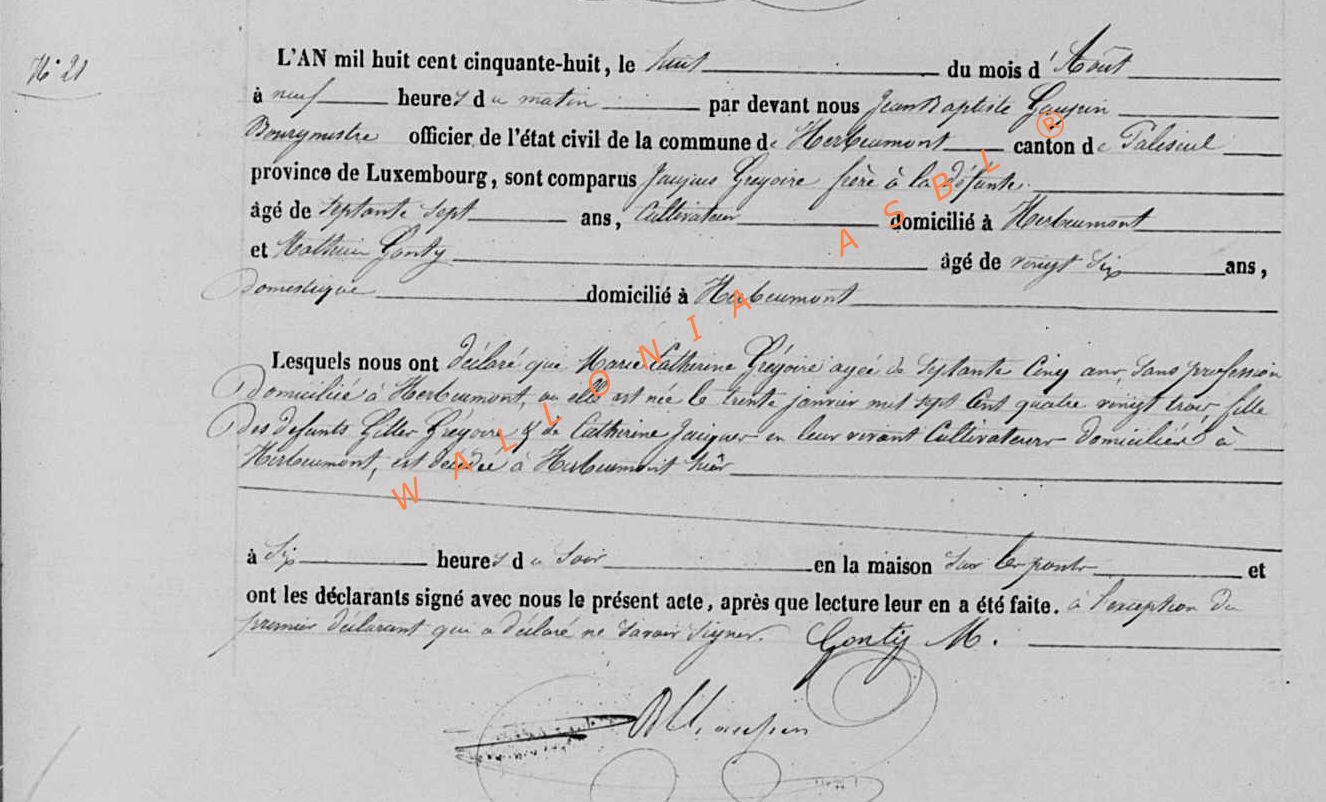 N° 21
L'AN mil huit cent cinquante-huit, le huit du mois d'Août
à neuf heures du matin par devant nous Jean Baptiste
Bourgmestre officier de l'état civil de la commune de Herbeumont canton de Paliseul
province de Luxembourg, sont comparus Jacques Grégoire frère à la défunte
âgé de septante sept ans, Cultivateur domicilié à Herbeumont
et Mathieu Gonty âgé de vingt six ans,
Domestique domicilié à Herbeumont
Lesquels nous ont déclaré que Marie Catherine Grégoire agée de septante cinq ans, sans profession
Domiciliée à Herbeumont, où elle est née le trente janvier mil sept cent quatre vingt trois, fille
Des défunts Gilles Grégoire & de Catherine Jacques en leur vivant Cultivateurs domiciliés à
Herbeumont, est décédée à Herbeumont hier
à six heures du soir en la maison sur les ponts et
ont les déclarants signé avec nous le présent acte, après que lecture leur en a été faite. à l'exception du
premier déclarant qui a déclaré ne savoir signer. Gonty M.
WALLONIA ASBL ®